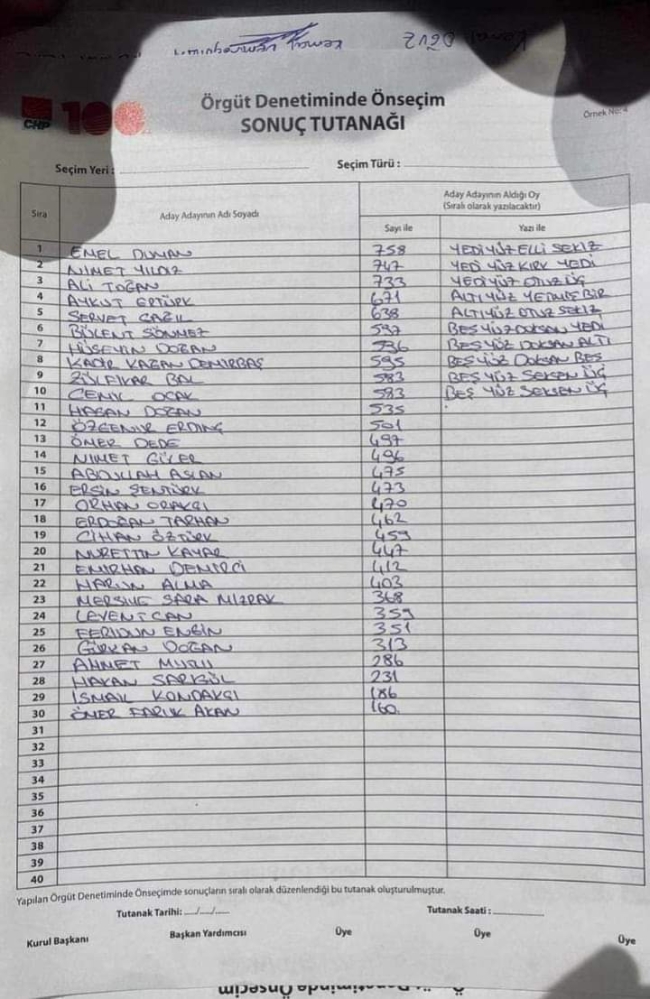 Örgüt Denetiminde Önseçim
SONUÇ TUTANAĞI
Örnek No: 4
CHP 100
Seçim Yeri :
Seçim Türü :
Sıra
Aday Adayının Adı Soyadı
Aday Adayının Aldığı Oy
(Sıralı olarak yazılacaktır)
Sayı ile
Yazı ile
1 EMEL DUMAN 758 YEDİ YÜZ ELLİ SEKİZ
2 NİMET YILDIZ 747 YEDİ YÜZ KIRK YEDİ
3 ALİ TOĞAN 733 YEDİ YÜZ OTUZ ÜÇ
4 AYKUT ERTÜRK 671 ALTI YÜZ YETMİŞ BİR
5 SERVET 638 ALTI YÜZ OTUZ SEKİZ
6 BÜLENT SÖNMEZ 597 BEŞ YÜZ DOKSAN YEDİ
7 HÜSEYİN DOĞAN 596 BEŞ YÜZ DOKSAN ALTI
8 KADİR KAĞAN DEMİRBAŞ 595 BEŞ YÜZ DOKSAN BEŞ
9 ZÜLFİKAR BAL 583 BEŞ YÜZ SEKSEN ÜÇ
10 CENK OCAK 583 BEŞ YÜZ SEKSEN ÜÇ
11 HASAN DOĞAN 535
12 ÖZGENUR ERDİNÇ 501
13 ÖMER DEDE 497
14 NİMET GÜLER 496
15 ABDULLAH ASLAN 475
16 ERSİN ŞENTÜRK 473
17 ORHAN ORAKÇI 470
18 ERDOĞAN TARHAN 462
19 CİHAN ÖZTÜRK 459
20 NURETTİN KAYAR 447
21 EMİRHAN DEMİRCİ 412
22 HARUN ALMA 403
23 SARA MIZRAK 368
24 LEVENT CAN 359
25 FERİDUN ENGİN 351
26 GÜRKAN DOĞAN 313
27 AHMET 286
28 HAKAN SARIGÜL 231
29 İSMAİL KONDAKÇI 186
30 ÖMER FARUK AKAN 160
31
32
33
34
35
36
37
38
39
40
Yapılan Örgüt Denetiminde Önseçimde sonuçların sıralı olarak düzenlendiği bu tutanak oluşturulmuştur.
Tutanak Tarihi: __/__/__
Tutanak Saati :
Kurul Başkanı
Başkan Yardımcısı
Üye
Üye
Üye
Örgüt Denetiminde Önseçim